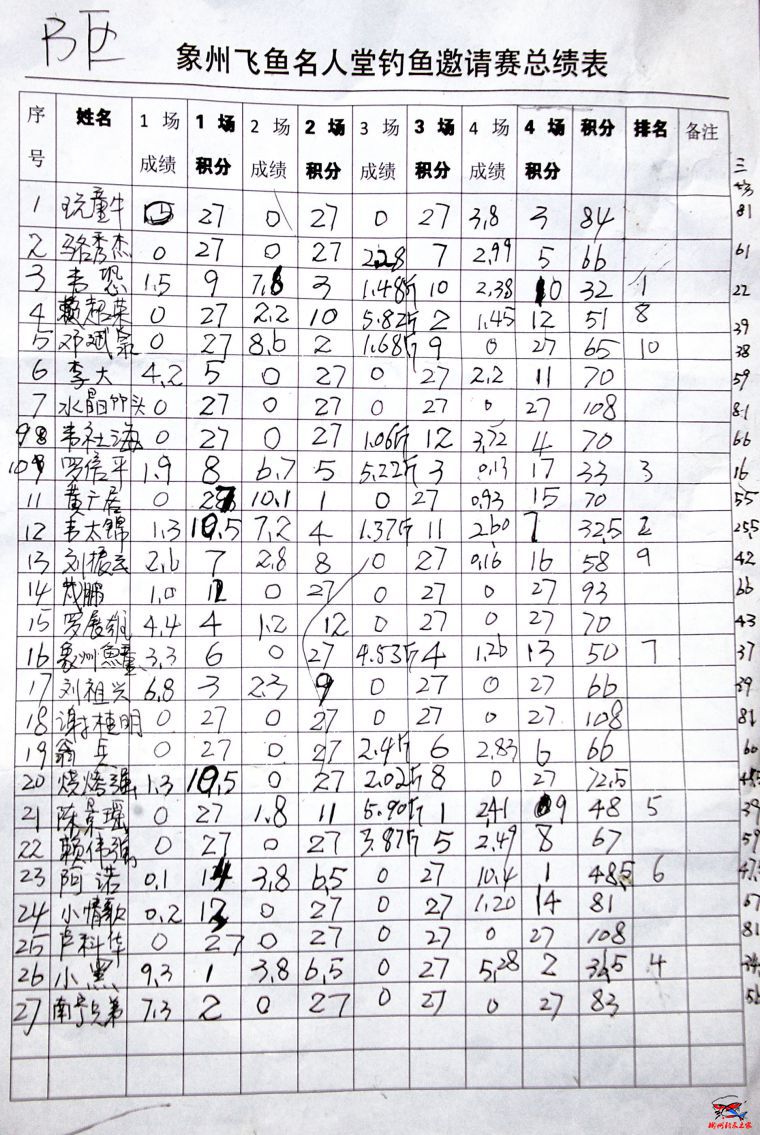 B区
象州飞鱼名人堂钓鱼邀请赛总绩表
序号 姓名 1场成绩 1场积分 2场成绩 2场积分 3场成绩 3场积分 4场成绩 4场积分 积分 排名 备注
三场
1 玩童牛 27 0 27 0 27 3.8 3 84 81
2 骆秀杰 0 27 0 27 2.28 7 2.99 5 66 61
3 韦恐 1.5 9 7.8 3 1.48斤 10 2.38 10 32 1 22
4 赖超荣 0 27 2.2 10 5.82斤 2 1.45 12 51 8 39
5 邓斌豪 0 27 8.6 2 1.68斤 9 0 27 65 10 38
6 李大 4.2 5 0 27 0 27 2.2 11 70 59
7 水晶印头 0 27 0 27 0 27 0 27 108 81
98 韦社海 0 27 0 27 1.06斤 12 3.72 4 70 66
109 罗信平 1.9 8 6.7 5 5.22斤 3 0.13 17 33 3 16
11 黄广居 0 27 10.1 1 0 27 0.93 15 70 55
12 韦太锦 1.3 10.5 7.2 4 1.37斤 11 2.60 7 32.5 2 25.5
13 刘振 2.6 7 2.8 8 0 27 0.16 16 58 9 42
14 鹏 1.0 12 0 27 0 27 0 27 93 66
15 罗展雄 4.4 4 1.2 12 0 27 0 27 70 43
16 象州魚童 3.3 6 0 27 4.53斤 4 1.26 13 50 7 37
17 刘祖兴 6.8 3 2.3 9 0 27 0 27 66 39
18 谢桂明 0 27 0 27 0 27 0 27 108 81
19 翁兵 0 27 0 27 2.4斤 6 2.83 6 66 60
20 烧烤强 1.3 10.5 0 27 2.02斤 8 0 27 72.5 45.5
21 陈景瑶 0 27 1.8 11 5.90斤 1 2.41 9 48 5 39
22 赖伟强 0 27 0 27 3.87斤 5 2.49 8 67 59
23 阿诺 0.1 14 3.8 6.5 0 27 10.4 1 48.5 6 47.5
24 小情歌 0.2 13 0 27 0 27 1.20 14 81 67
25 卢科华 0 27 0 27 0 27 0 27 108 81
26 小黑 9.3 1 3.8 6.5 0 27 5.28 2 36.5 4 34.5
27 南宁兄弟 7.3 2 0 27 0 27 0 27 83 56
柳州钓友之家